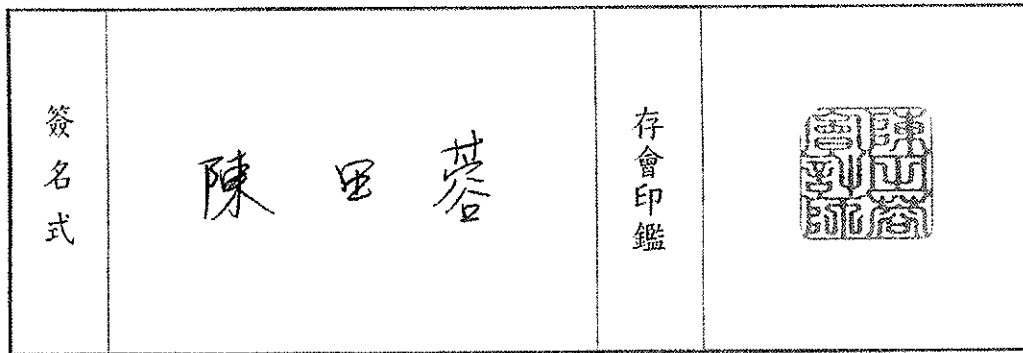 簽名式
陳 蓉
存會印鑑
陳 蓉
會計師